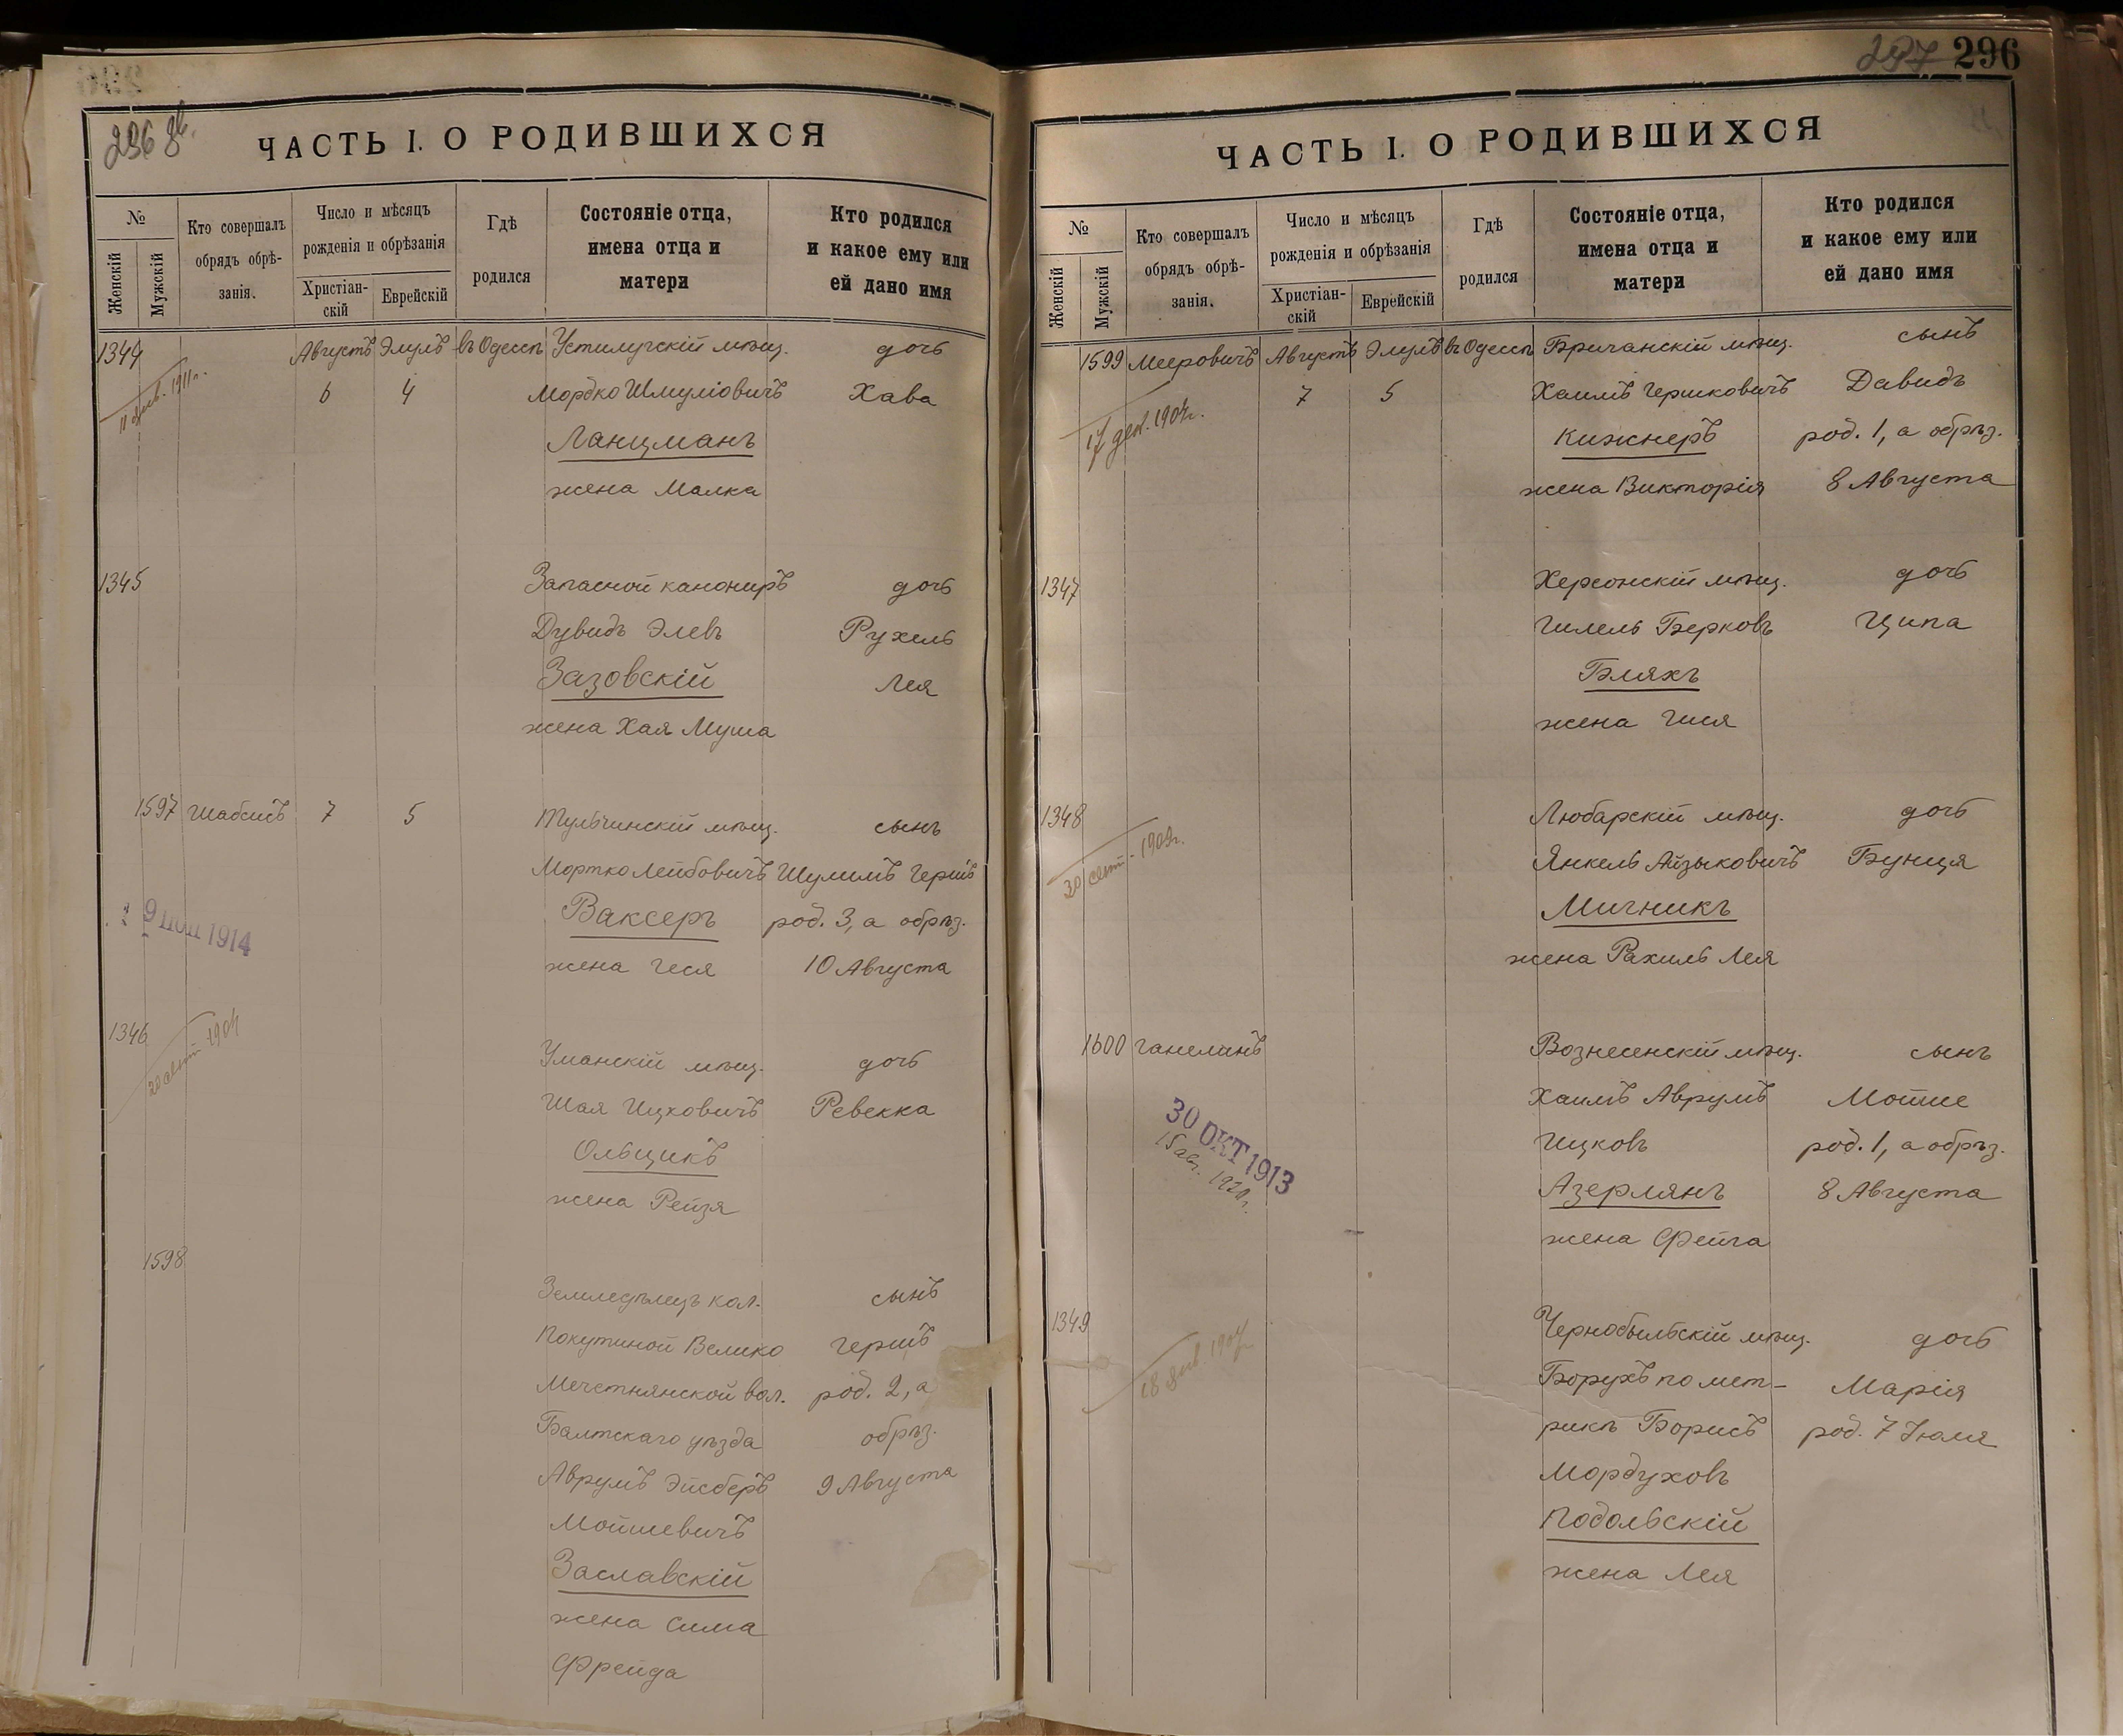 296 об.
ЧАСТЬ I. О РОДИВШИХСЯ
№
Женскій
Мужскій
Кто совершалъ
обрядъ обрѣ-
занія.
Число и мѣсяцъ
рожденія и обрѣзанія
Христіан-
скій
Еврейскій
Гдѣ
родился
Состояніе отца,
имена отца и
матери
Кто родился
и какое ему или
ей дано имя
1344 Августъ Элулъ въ Одессѣ Устилугскій мѣщ. дочь
11 янв. 1911 г. 6 4 Мордко Шмуліовичъ Хава
Ланцманъ
жена Малка
1345 Запасной канониръ дочь
Дувидъ Элевъ Рухель
Зазовскій Лея
жена Хая Муша
1597 Шабсисъ 7 5 Тульчинскій мѣщ. сынъ
Мортко Лейбовичъ Шулимъ Гершъ
Ваксеръ род. 3, а обрѣз.
1914
жена Геся 10 Августа
1346 Уманскій мѣщ. дочь
Шая Ицковичъ Ревекка
Ольщикъ
жена Рейзя
1598 Земледѣлецъ кол. сынъ
Покутиной Велико Гершъ
Мечетнянской вол. род. 2, а
Балтскаго уѣзда обрѣз.
Аврумъ Эйсберъ 9 Августа
Мойшевичъ
Заславскій
жена Сима
Фрейда
297 296
ЧАСТЬ I. О РОДИВШИХСЯ
№
Женскій
Мужскій
Кто совершалъ
обрядъ обрѣ-
занія.
Число и мѣсяцъ
рожденія и обрѣзанія
Христіан-
скій
Еврейскій
Гдѣ
родился
Состояніе отца,
имена отца и
матери
Кто родился
и какое ему или
ей дано имя
1599 Мееровичъ Августъ Элулъ въ Одессѣ Бричанскій мѣщ. сынъ
17 дек. 7 5 Хаимъ Гершковичъ Давидъ
Кижнеръ род. 1, а обрѣз.
жена Викторія 8 Августа
1347 Херсонскій мѣщ. дочь
Гилель Берковъ Ципа
Бляхъ
жена Гися
1348 Любарскій мѣщ. дочь
30 сент. 1909 г. Янкель Айзыковичъ Бунця
Мичникъ
жена Рахиль Лея
1600 Ганелинъ Вознесенскій мѣщ. сынъ
30 ОКТ 1913 Хаимъ Аврумъ Мойше
15 авг. 1920 г. Ицковъ род. 1, а обрѣз.
Азерлянъ 8 Августа
жена Фейга
1349 Чернобыльскій мѣщ. дочь
Борухъ по мет- Марія
рикѣ Борисъ род. 7 Іюля
Мордуховъ
Подольскій
жена Лея